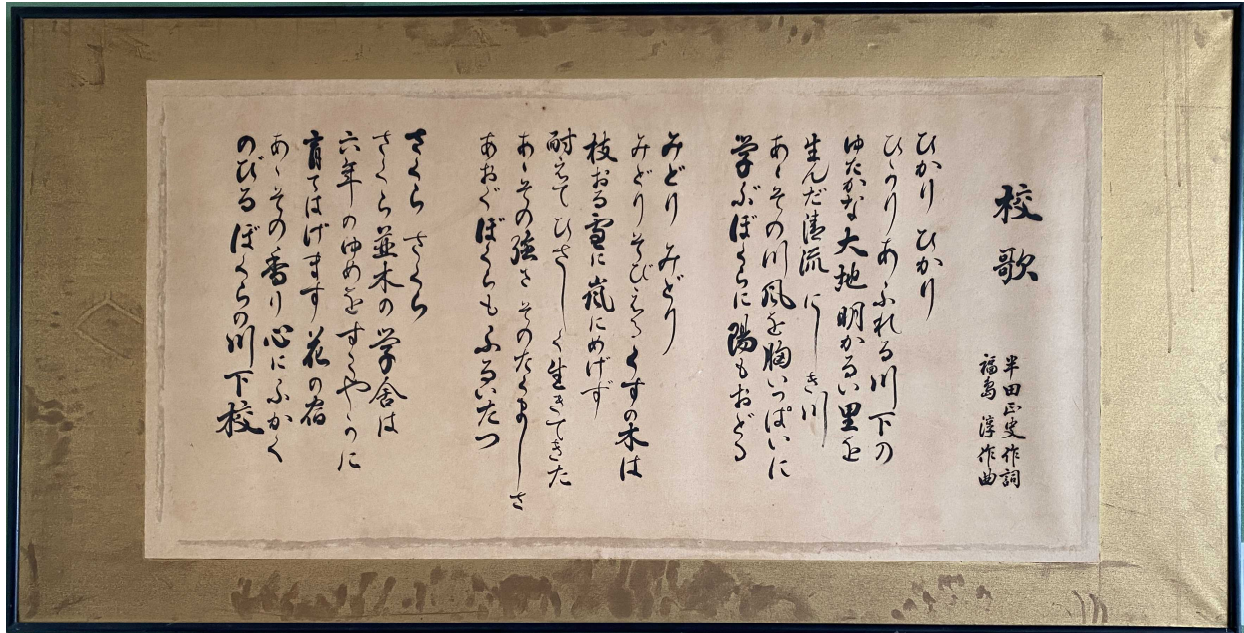 校歌
半田正史作詞
福島淳作曲
ひかり ひかり
ひかりあふれる川下の
ゆたかな大地明かるい里を
生んだ清流 にしき川
あゝその川風を胸いっぱいに
学ぶぼくらに陽もおどる
みどり みどり
みどりそびえる くすの木は
枝おる雪に嵐にめげず
耐えて ひさしく生きてきた
あゝその強さ そのたくましさ
あおぐぼくらもふるいたつ
さくら さくら
さくら並木の学舎は
六年のゆめをすこやかに
育てはげます花の宿
あゝその香り心にふかく
のびるぼくらの川下校